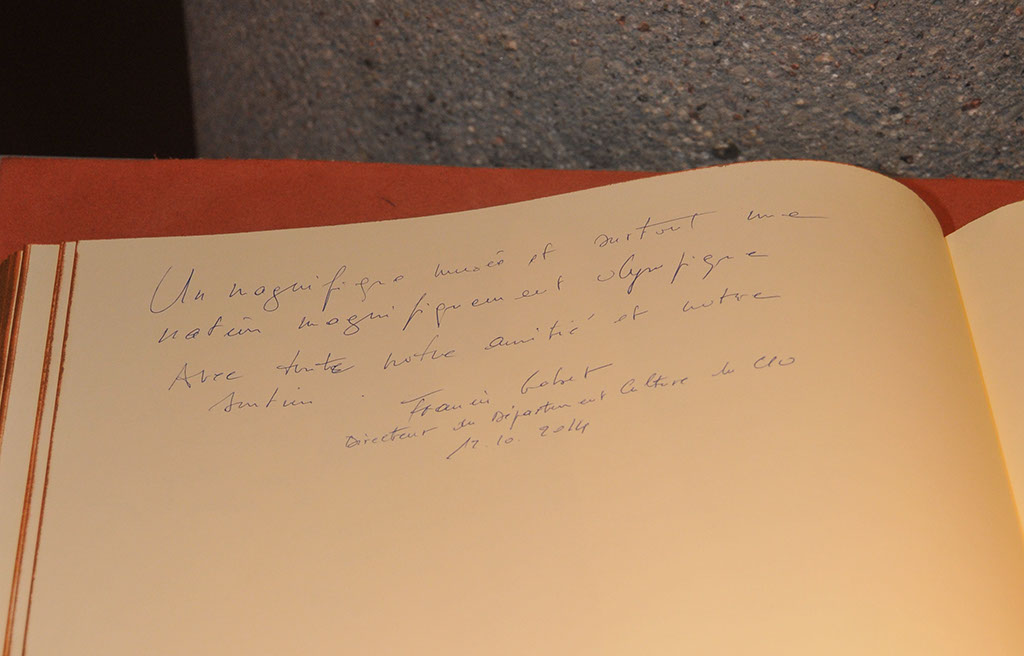 Un magnifique musée et surtout une
nation magnifiquement olympique
Avec toute notre amitié et notre
soutien. Francis Gabet
Directeur du Département Culture du CIO
12.10.2014